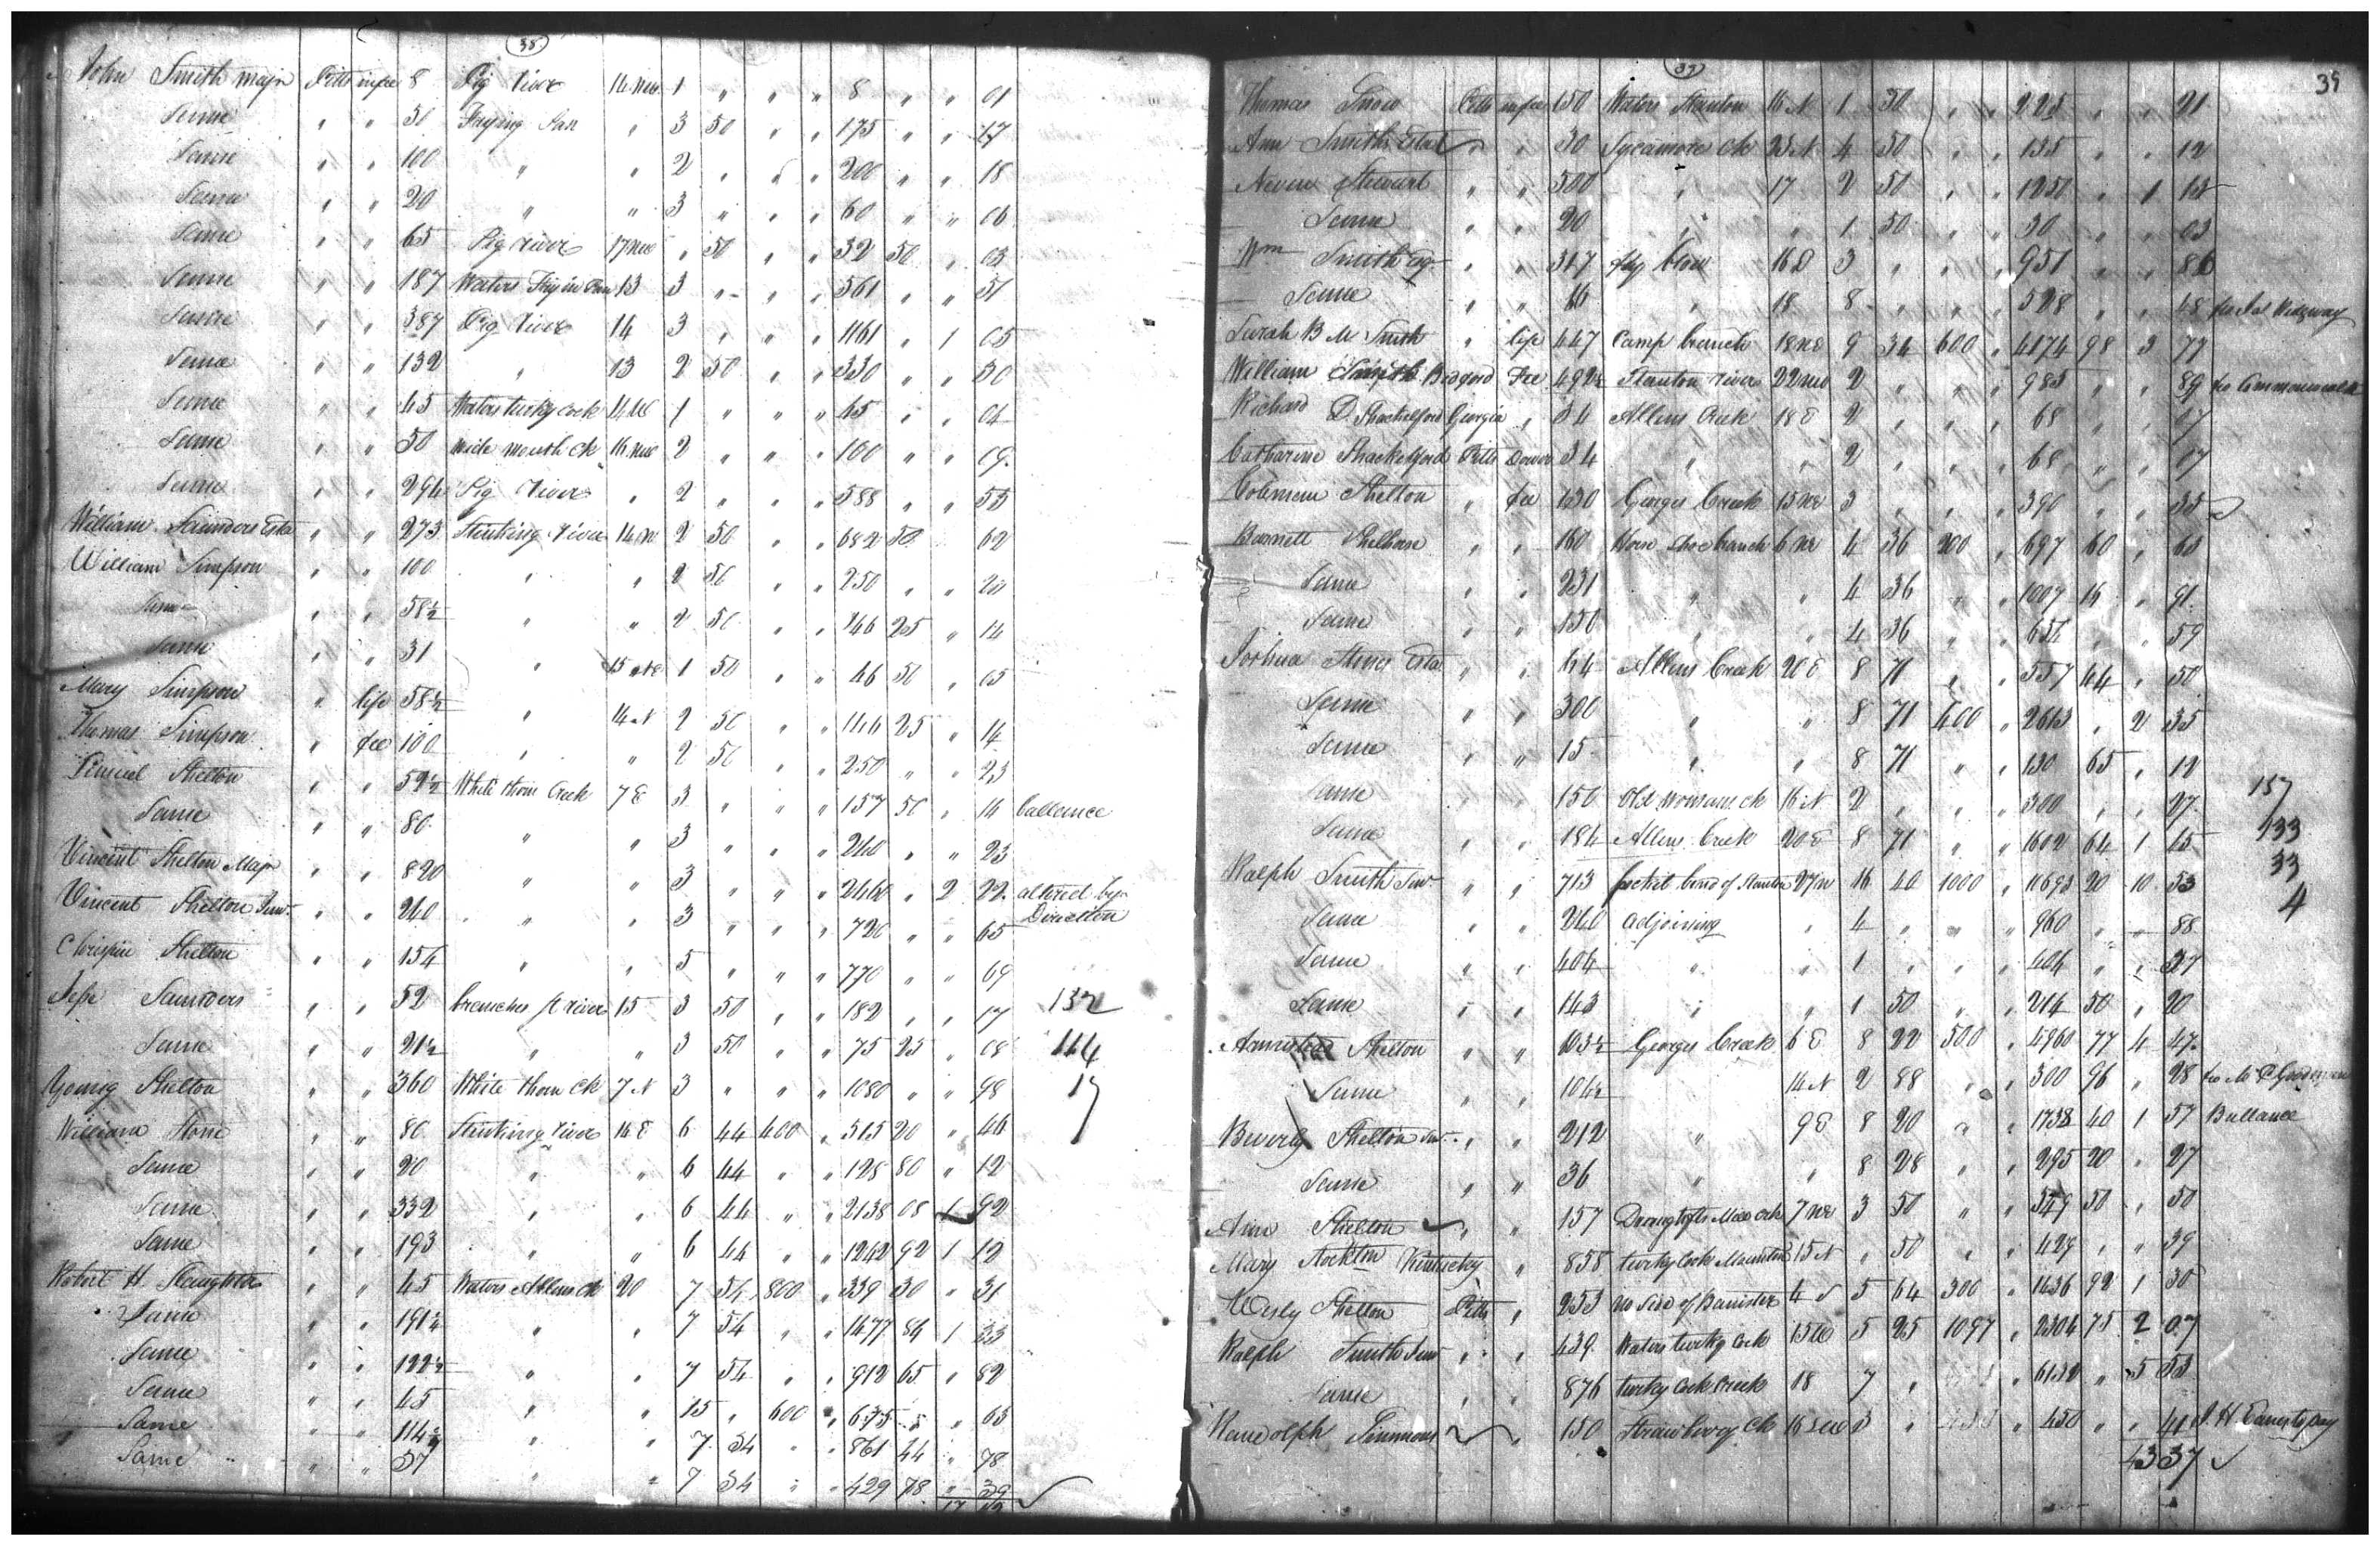 38
John Smith majr Pitts in fee 8 Pig river 14 NW 1 " " " 8 " " 01
Same " " 50 Frying Pan " 3 50 " " 175 " " 17
Same " " 100 " " 2 " " " 200 " " 18
Same " " 20 " " 3 " " " 60 " " 06
Same " " 65 Pig river 17 NW " 50 " " 32 50 " 03
Same " " 187 Waters Fryin Pan 13 3 " " " 561 " " 51
Same " " 387 Pig river 14 3 " " " 1161 " 1 05
Same " " 132 " 13 2 50 " " 330 " " 30
Same " " 45 Waters turky cock 14 W 1 " " " 45 " " 04
Same " " 50 wide mouth ck 16 NW 2 " " " 100 " " 09
Same " " 294 Pig River " 2 " " " 588 " " 53
William Saunders Esta " " 273 Stinking River 14 N 2 50 " " 682 50 " 62
William Simpson " " 100 " " 2 50 " " 250 " "
Same " " 58½ " " 2 50 " " 146 25 " 14
Same " " 31 " 15 NE 1 50 " " 46 50 " 05
Mary Simpson " life 58½ " 14 N 2 50 " " 146 25 " 14
Thomas Simpson " fee 100 " " 2 50 " " 250 " " 23
Lemuel Shelton " " 52½ White thorn Creek 7 E 3 " " " 157 50 " 14 ballance
Same " " 80 " " 3 " " " 240 " " 23
Vincent Shelton Majr " " 820 " " 3 " " " 2460 " 2 22 altered by
Direction
Vincent Shelton Junr " " 240 " " 3 " " " 720 " " 65
Chrispin Shelton " " 154 " " 5 " " " 770 " " 69
Jesse Saunders " " 52 branches St river 15 3 50 " " 182 " " 17 132
Same " " 21½ " " 3 50 " " 75 25 " 08 144
Young Shelton " " 360 White thorn Ck 7 N 3 " " " 1080 " " 98 17
William Stone " " 80 Stinking river 16 E 6 44 400 " 515 20 " 46
Same " " 20 " " 6 44 " " 128 80 " 12
Same " " 332 " " 6 44 " " 2138 08 1 92
Same " " 193 " " 6 44 " " 1242 92 1 12
Robert H. Slaughter " " 45 Waters Allens Ck 20 7 54 800 " 339 30 " 31
Same " " " " 7 54 " " 1477 84 1 33
Same " " " " 7 54 " " 912 65 " 82
Same " " 45 " " 15 " 600 " 675 " " 63
Same " " " " 7 54 " " 861 44 " 78
Same " " 57 " " 7 54 " " 429 78 " 39
39
39
Thomas Snow Pitts in fee 150 Waters Stanton 16 N 1 50 " " 225 " " 21
Ann Smiths Esta " " 30 Sycamore Ck 23 N 4 50 " " 135 " " 12
Stewart " " 500 " 17 2 50 " " 1250 " 1 13
Same " " 20 " " 1 50 " " 30 " " 03
Wm Smith " " 317 fly blow 16 3 " " " 951 " " 86
Same " " 66 " 18 8 " " " 528 " " 48
Sarah B M Smith " life 447 Camp branch 18 NE 9 34 600 " 4174 98 3 77
William Smith Bedford Fee 492½ Stanton river 22 NW 2 " " " 985 " " 89 to Commonwealth
Richard D. Shackelford Georgia " 34 Allens Creek 18 E 2 " " " 68 " " 07
Catharine Shackelford Pitts Dower 34 " " 2 " " " 68 " " 07
Coleman Shelton " fee 130 Georges Creek 15 NE 3 " " " 390 " " 35
Barnett Shelhorse " " 160 Horse shoe branch 6 NE 4 36 200 " 697 60 " 63
Same " " 231 " " 4 36 " " 1007 16 " 91
Same " " 150 " " 4 36 " " 654 " " 59
Joshua Stones Esta " " 64 Allens Creek 20 E 8 71 " " 557 44 " 50
Same " " 300 " " 8 71 400 " 2613 " 2 35
Same " " 15 " " 8 71 " " 130 65 " 12
Same " " 150 Old womans ck 16 N 2 " " " 300 " " 27 157
Same " " 184 Allens Creek 20 E 8 71 " " 1602 64 1 45 133
33
Ralph Smith Senr " " 713 pocket bend of Stanton 27 N 16 40 1000 " 11693 20 10 53 4
Same " " 240 adjoining " 4 " " " 960 " " 88
Same " " 404 " " 1 " " " 404 " " 37
Same " " 143 " " 1 50 " " 214 50 " 20
Armistead Shelton " " Georges Creek 6 E 8 22 500 " 4960 77 4 47
Same " " 104½ 14 N 2 88 " " 300 96 " 28
Beverly Shelton " " 212 " 9 E 8 20 " " 1738 40 1 57 Ballance
Same " " 36 " " 8 28 " " 295 20 " 27
Ann Shelton " " 157 7 NE 3 50 " " 549 50 " 50
Mary Stockton Kentucky " 858 turky Cock Mountain 15 N " 50 " " 429 " " 39
Wesly Shelton Pitts " 253 No Side of Banister 4 S 5 64 300 " 1436 92 1 30
Ralph Smith Junr " " 439 Waters turky Cock 15 W 5 25 1097 " 2304 75 2 07
Same " " 876 turky Cock Creek 18 7 " " " 6132 " 5 53
Randolph Simmons " 150 Strawberry Ck 16 3 " " " 450 " " 41
43 37